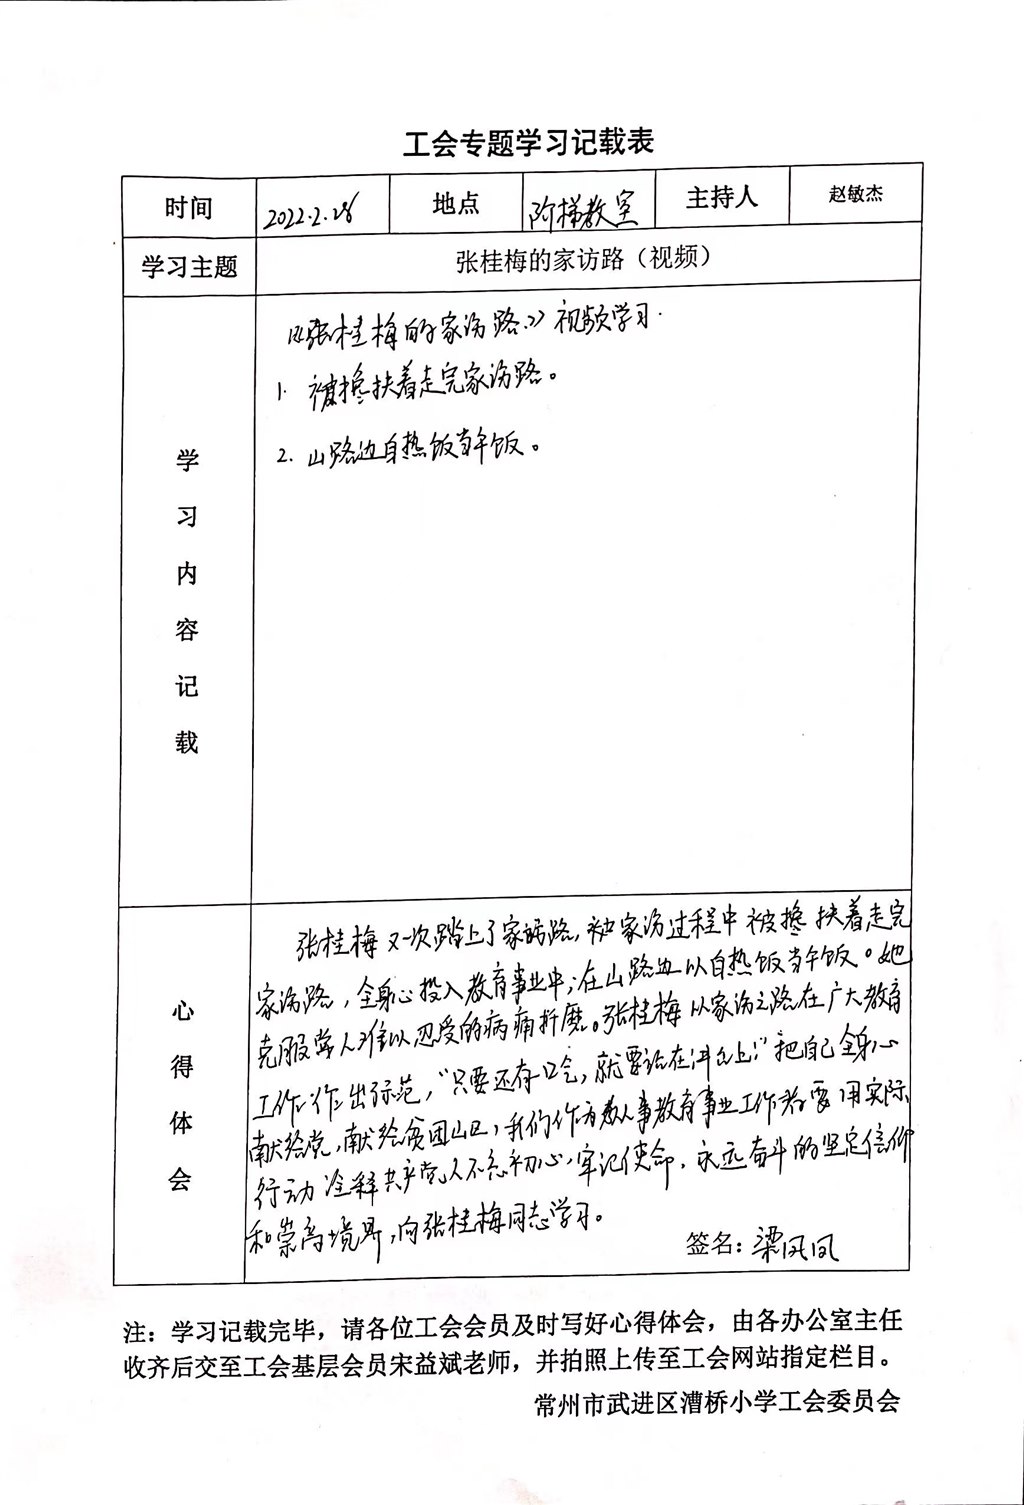 工会专题学习记载表
时间 2022.2.28 地点 阶梯教室 主持人 赵敏杰
学习主题 张桂梅的家访路（视频）
学习内容记载
《张桂梅的家访路》视频学习.
1. 被搀扶着走完家访路。
2. 山路边自热饭当午饭。
心得体会
张桂梅又一次踏上了家访路，在家访过程中被搀扶着走完
家访路，全身心投入教育事业中；在山路边以自热饭当午饭。她
克服常人难以忍受的病痛折磨。张桂梅以家访之路在广大教育
工作作出示范，“只要还有口气，就要站在讲台上”把自己全身心
献给党，献给贫困山区，我们作为从事教育事业工作者要用实际
行动诠释共产党人不忘初心，牢记使命，永远奋斗的坚定信仰
和崇高境界，向张桂梅同志学习。
签名：梁凤凤
注：学习记载完毕，请各位工会会员及时写好心得体会，由各办公室主任
收齐后交至工会基层会员宋益斌老师，并拍照上传至工会网站指定栏目。
常州市武进区漕桥小学工会委员会